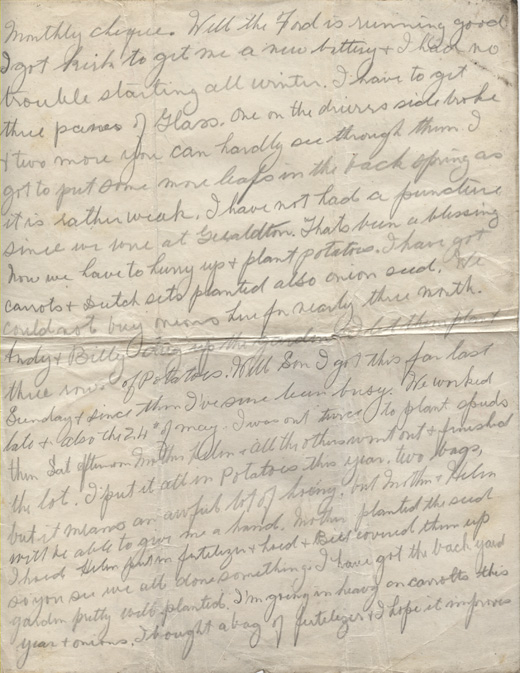 Monthly cheque. Well the Ford is running good
I got Kirk to get me a new battery & I had no
trouble starting all winter. I have to get
three panes of Glass. One on the drivers side broke
& two more you can hardly see through them. I
got to put some more leafs in the back spring as
it is rather weak. I have not had a puncture
since we were at Geraldton. Thats been a blessing
Now we have to hurry up & plant potatoes. I have got
carrots & Dutch sets planted also onion seed. We
could not buy onions here for nearly three month.
Andy & Billy dug up the garden & let them plant
three rows of Potatoes. Well Son I got this far last
Sunday & since then I've sure been busy. We worked
late & also the 24th of may. I was out twice to plant spuds
then Sat afternoon Mother Helen & all the others went out & finished
the lot. I put it all in Potatoes this year. two bags,
but it means an awful lot of hoeing. but Mother & Helen
will be able to give me a hand. Mother planted the seed
I hoed Helen put in fertilizer & hoed & Bill covered them up
so you see we all done something. I have got the back yard
garden pretty well planted. I'm going in heavy on carrotts this
year & onions. I bought a bag of fertelizer & I hope it improves